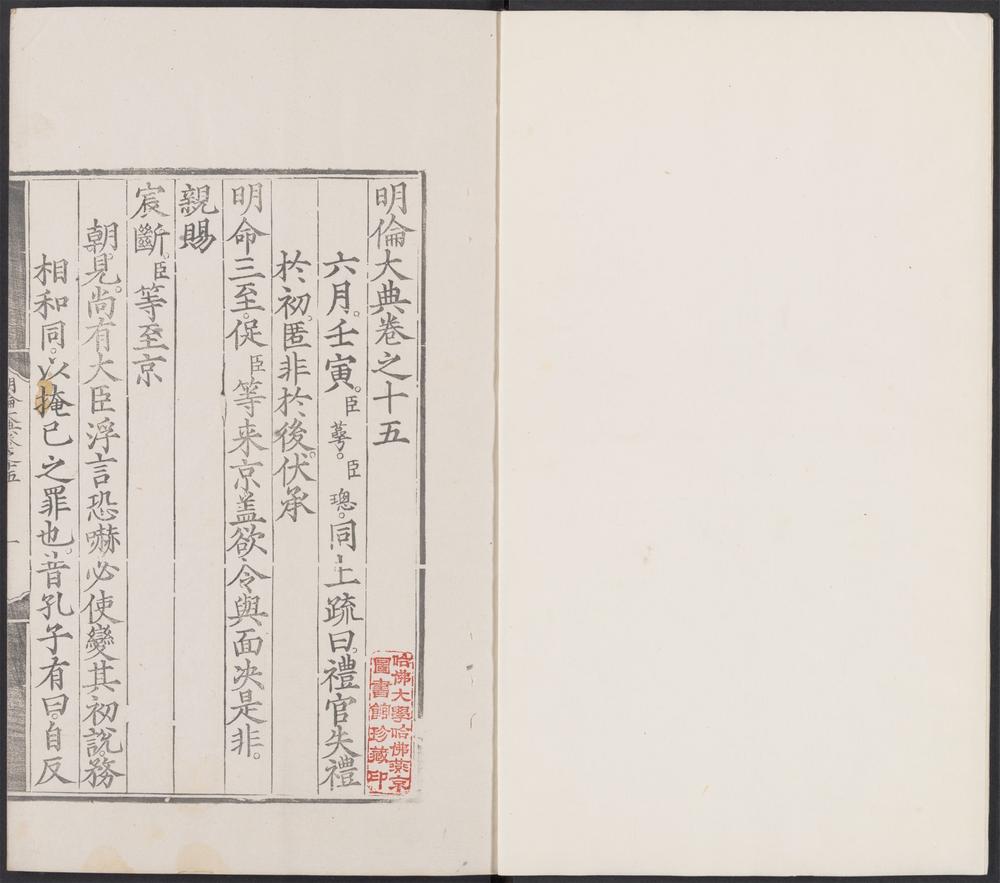 明倫大典卷之十五
六月。壬寅。臣萼。臣璁。同上疏曰。禮官失禮
於初。匿非於後。伏承
明命三至。促臣等来京盖欲令與面决是非。
親賜
宸斷。臣等至京
朝見。尚有大臣浮言恐嚇必使變其初說。務
相和同。以掩已之罪也。昔孔子有曰。自反
明倫大典卷之十五
一
哈佛大學哈佛燕京
圖書館珍藏印